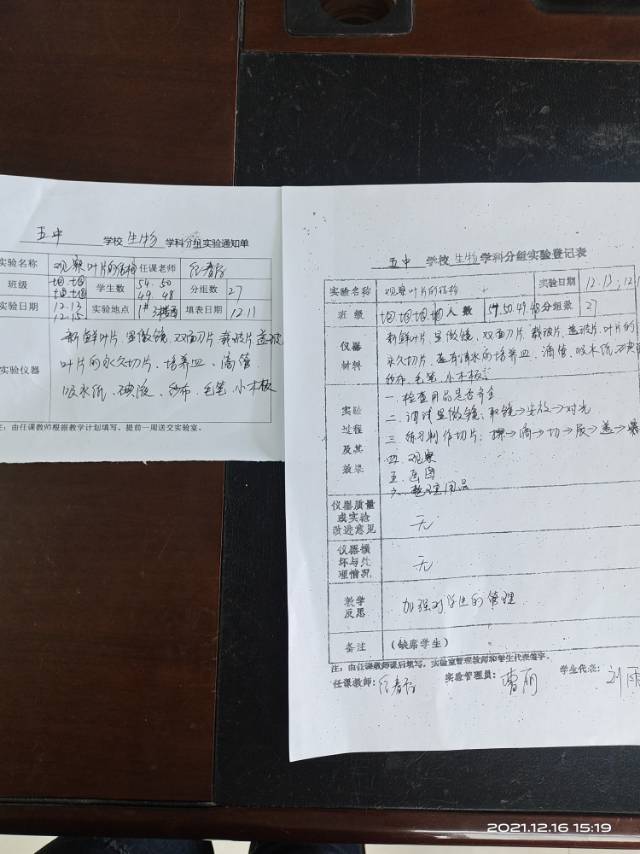 五中 学校 生物 学科分组实验通知单
实验名称 观察叶片的结构 任课老师
班级 学生数 54.50 49 48 分组数 27
实验日期 12.13 12.15 实验地点 1# 填表日期 12.11
实验仪器
新鲜叶片、显微镜、双面刀片、载玻片、盖玻
叶片的永久切片、培养皿、滴管
吸水纸、碘液、纱布、毛笔、小木板
注：由任课教师根据教学计划填写，提前一周送交实验室。
五中 学校 生物 学科分组实验登记表
实验名称 观察叶片的结构 实验日期 12.13
班级 人数 54.50.49.48 分组数 27
仪器材料
新鲜叶片、显微镜、双面刀片、载玻片、盖玻片、叶片的
永久切片、盛有清水的培养皿、滴管、吸水纸、碘液
纱布、毛笔、小木板
实验过程及其效果
一、检查用品是否齐全
二、调试显微镜：取镜→安放→对光
三、练习制作切片：擦→滴→切→展→盖→染
四、观察
五、画图
六、整理用品
仪器质量或实验改进意见 无
仪器损坏与处理情况 无
教学反思 加强对学生的管理
备注 （缺席学生）
注：由任课教师课后填写，实验室管理教师和学生代表签字。
任课教师： 实验管理员：曹丽 学生代表：刘雨
2021.12.16 15:19